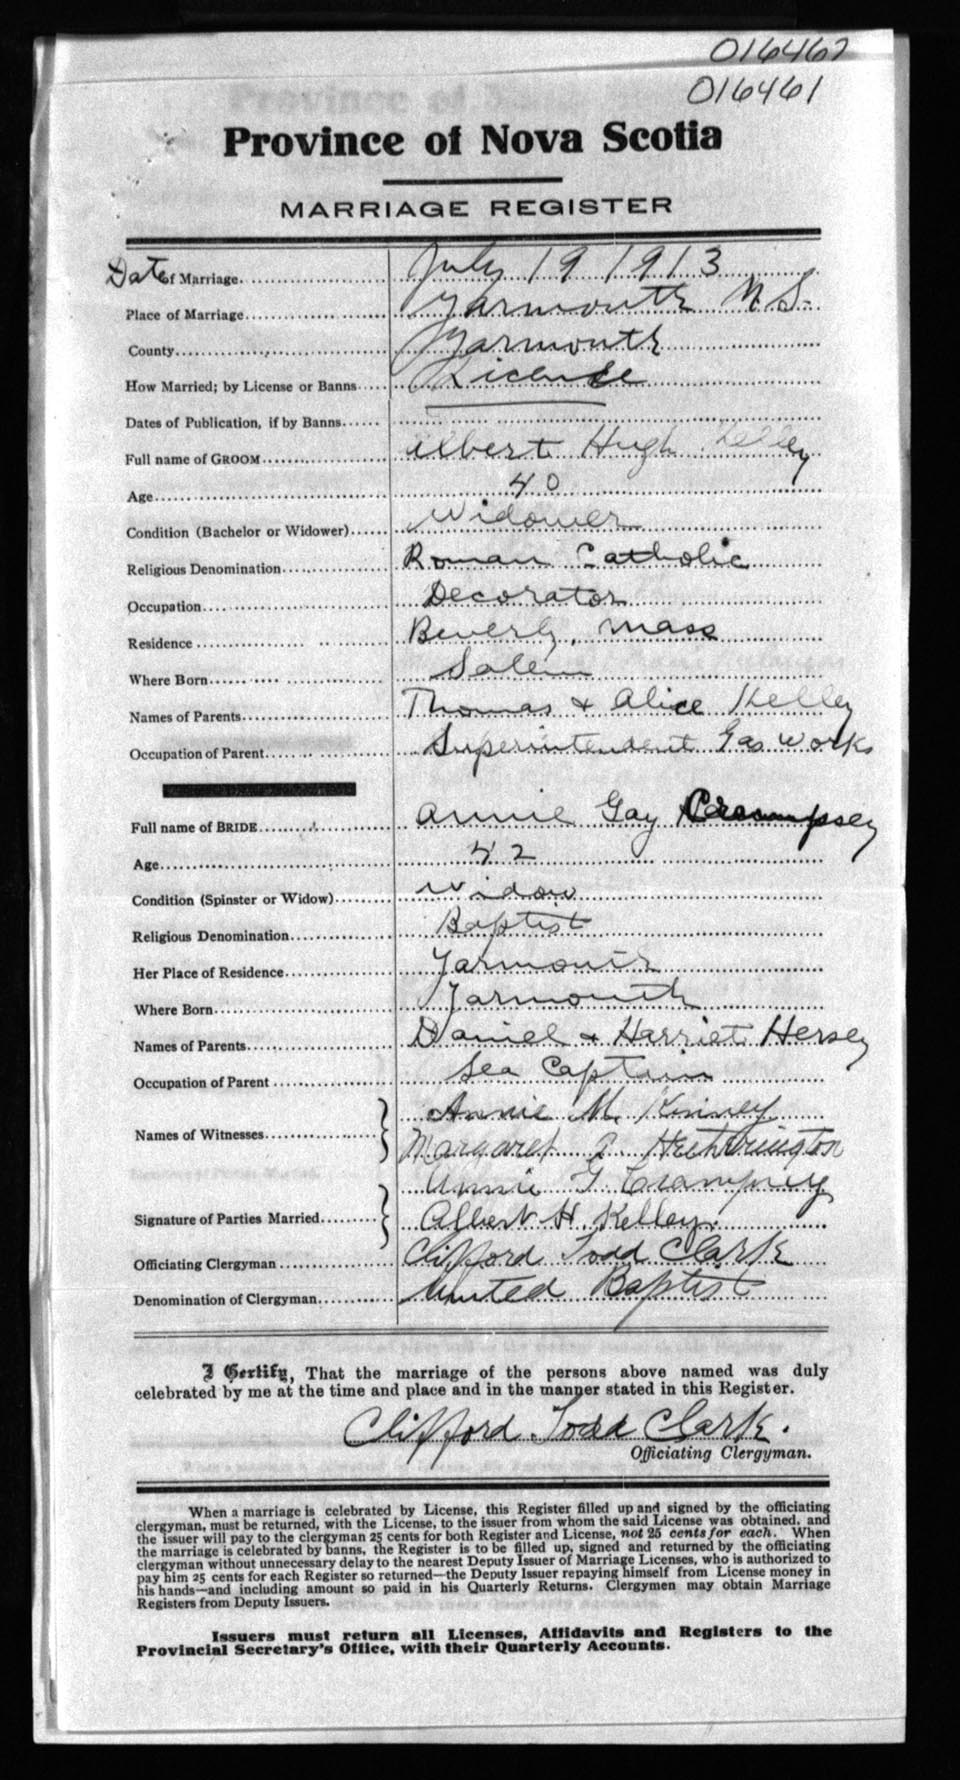 016462
016461
Province of Nova Scotia
MARRIAGE REGISTER
Date of Marriage July 19 1913
Place of Marriage Yarmouth N.S.
County Yarmouth
How Married; by License or Banns License
Dates of Publication, if by Banns
Full name of GROOM Albert Hugh Kelley
Age 40
Condition (Bachelor or Widower) Widower
Religious Denomination Roman Catholic
Occupation Decorator
Residence Beverly, Mass
Where Born Salem
Names of Parents Thomas & Alice Kelley
Occupation of Parent Superintendent Gas Works
Full name of BRIDE Annie Gay
Age 42
Condition (Spinster or Widow) Widow
Religious Denomination Baptist
Her Place of Residence Yarmouth
Where Born Yarmouth
Names of Parents Daniel & Harriet Hersey
Occupation of Parent Sea Captain
Names of Witnesses Annie M. Kinney
Margaret Hetherington
Annie G. Crampsey
Signature of Parties Married Albert H. Kelley.
Officiating Clergyman Clifford Todd Clark
Denomination of Clergyman United Baptist
I Certify, That the marriage of the persons above named was duly
celebrated by me at the time and place and in the manner stated in this Register.
Clifford Todd Clark.
Officiating Clergyman.
When a marriage is celebrated by License, this Register filled up and signed by the officiating
clergyman, must be returned, with the License, to the issuer from whom the said License was obtained, and
the issuer will pay to the clergyman 25 cents for both Register and License, not 25 cents for each. When
the marriage is celebrated by banns, the Register is to be filled up, signed and returned by the officiating
clergyman without unnecessary delay to the nearest Deputy Issuer of Marriage Licenses, who is authorized to
pay him 25 cents for each Register so returned—the Deputy Issuer repaying himself from License money in
his hands—and including amount so paid in his Quarterly Returns. Clergymen may obtain Marriage
Registers from Deputy Issuers.
Issuers must return all Licenses, Affidavits and Registers to the
Provincial Secretary's Office, with their Quarterly Accounts.